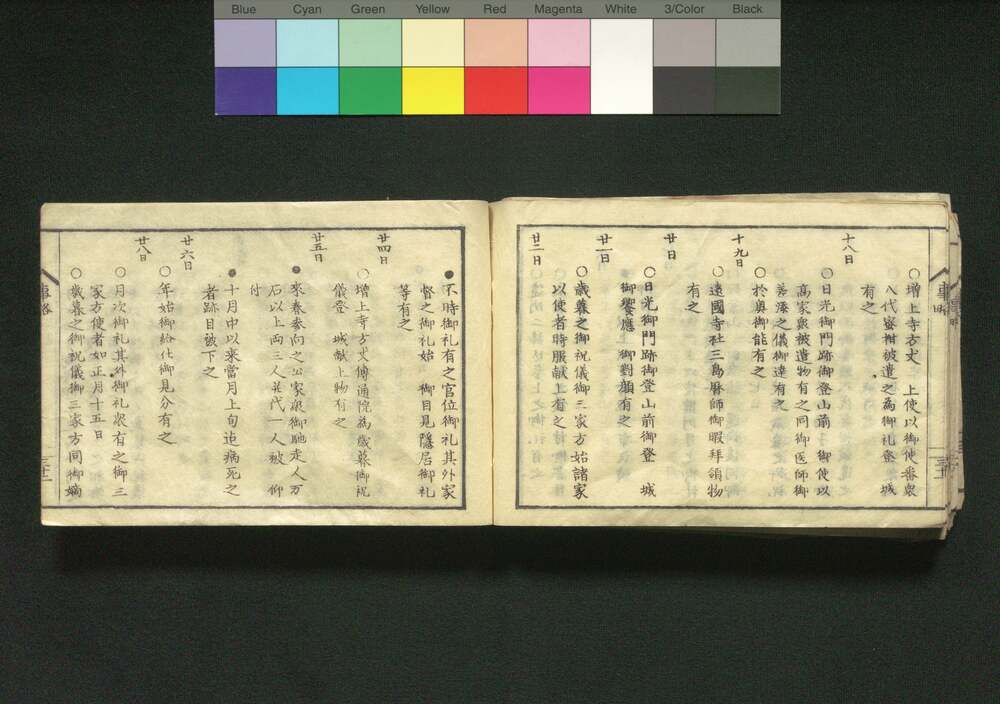 Blue Cyan Green Yellow Red Magenta White 3/Color Black
十八日
○増上寺方丈 上使以御使番衆
八代蜜柑被遣之為御礼登 城
有之
○日光御門跡御登山前御使以
高家衆被遣物有之同御医師御
菓湊之儀御達有之
○於奥御能有之
十九日
○遠國寺社三島暦師御暇拜領物
有之
廿日
○日光御門跡御登山前御登 城
御饗應 御對顔有之
廿一日
○歳暮之御祝儀御三家方始諸家
以使者時服献上有之
廿二日
●不時御礼有之官位御礼其外家
督之御礼始 御目見隱居御礼
等有之
廿四日
○増上寺方丈傳通院為歳暮御祝
儀登 城献上物有之
廿五日
●来春参向之公家衆御馳走人万
石以上両三人交代一人被 仰
付
●十月中以来當月上旬迄病死之
者跡目被下之
廿六日
○年始御給仕御見分有之
廿八日
○月次御礼其外御礼衆有之御三
家方使者如正月十五日
○歳暮之御祝儀御三家方同御嫡
事略